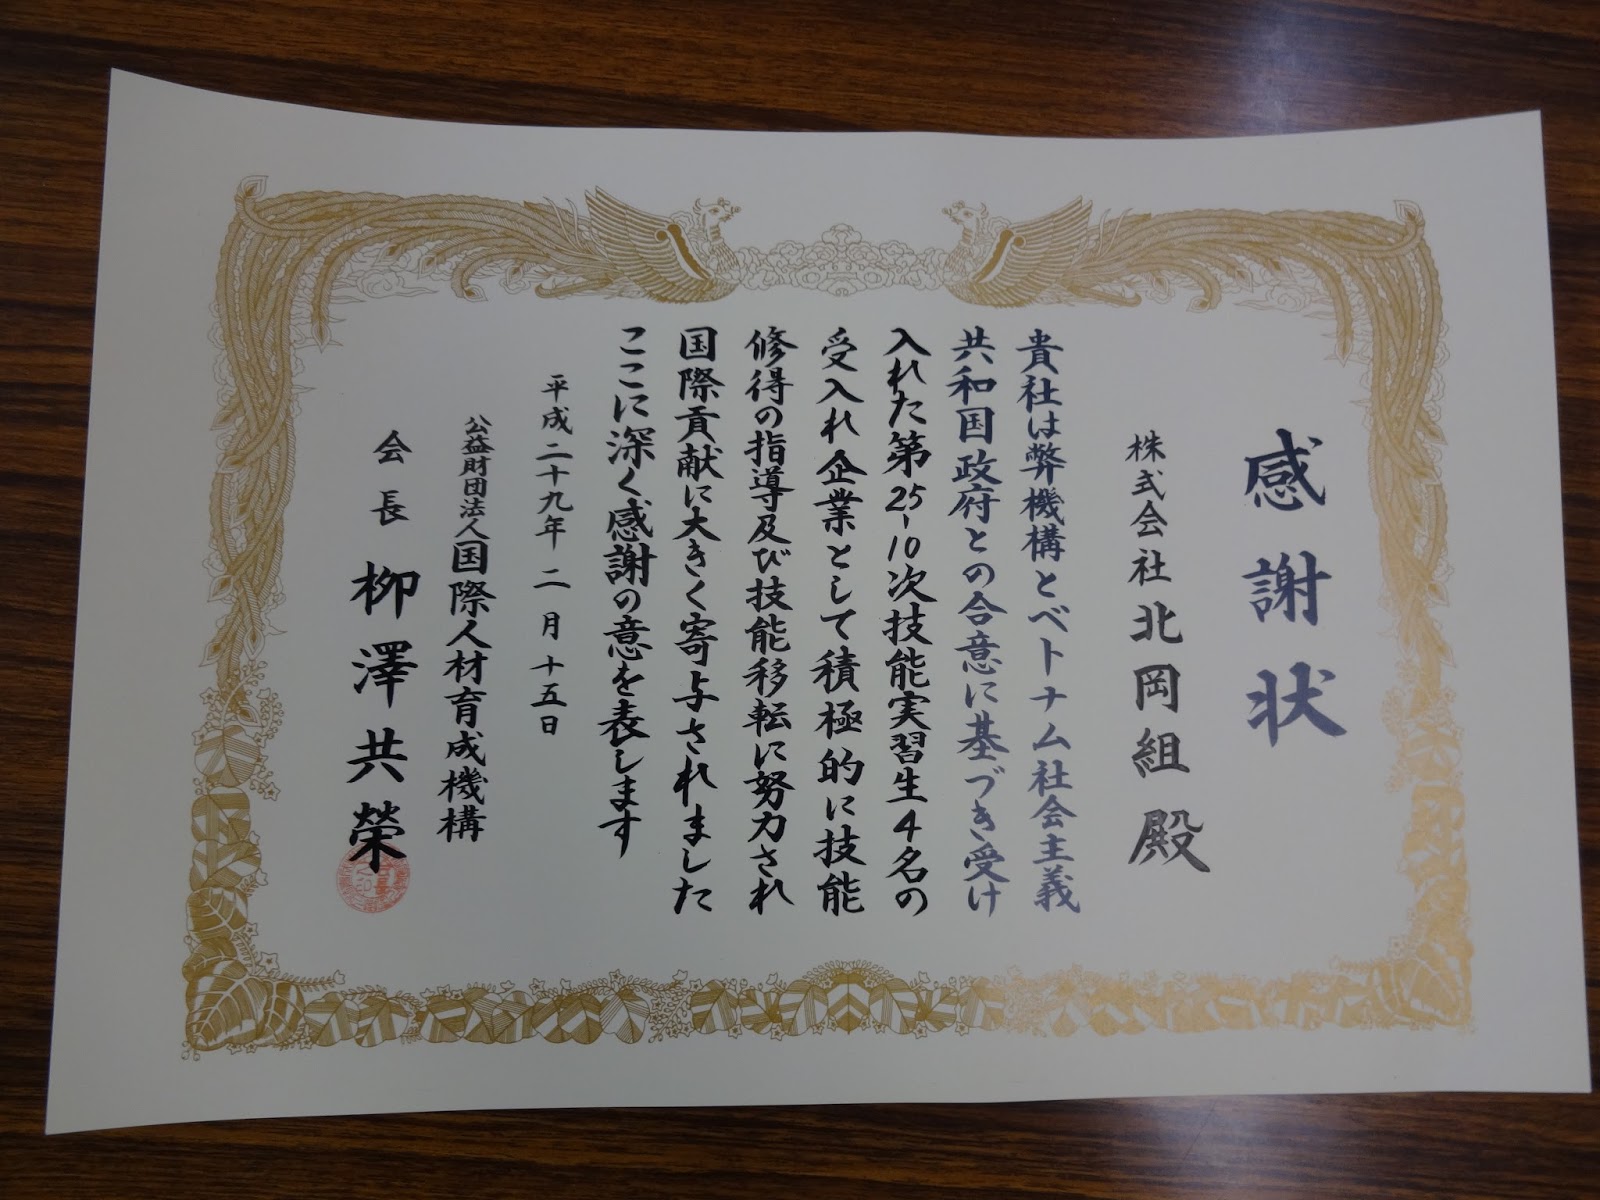 感謝状
株式会社北岡組殿
貴社は弊機構とベトナム社会主義
共和国政府との合意に基づき受け
入れた第25-10次技能実習生4名の
受入れ企業として積極的に技能
修得の指導及び技能移転に努力され
国際貢献に大きく寄与されました
ここに深く感謝の意を表します
平成二十九年二月十五日
公益財団法人国際人材育成機構
会長柳澤共榮